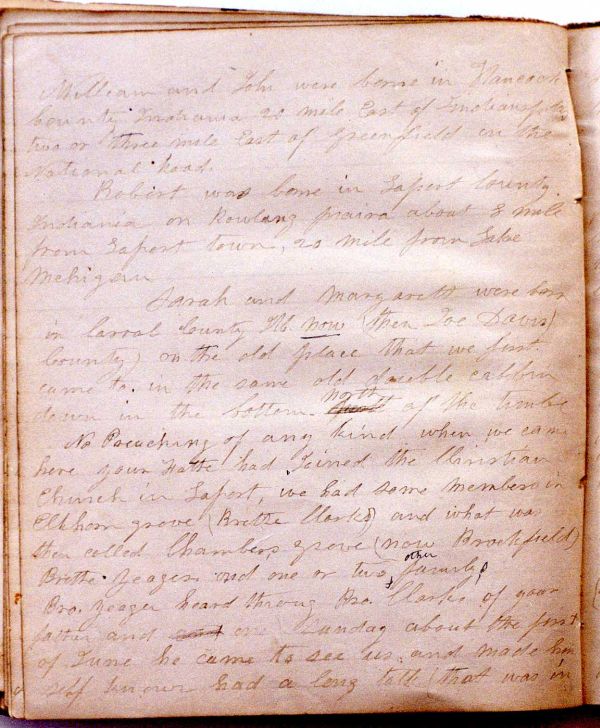 William and John were borne in Hancock
County Indiania 20 mile East of Indianapolis
two or three mile East of Greenfield on the
National Road.
Robert was borne in Laport County
Indiania on Rowlang praira about 8 mile
from Laport town, 20 mile from Lake
Mchigan
Sarah and Margarett were born
in Carral County Ill. now (then Joe Daviss
County) on the old place that we first
came to in the same old double cabbin
down in the bottom north of the timber
No Preaching of any kind when we came
here your Father had Joined the Christian
Church in Laport, we had some members in
Elkhorn grove (Brethe Clarks) and what was
then called Chambers grove (now Brookfield)
Brethe Yeagers and one or two other family,s
Bro. Yeager heard throug Bro. Clarks of your
father and one Sunday about the first
of June he came to see us and made him
self known had a long talk (that was in